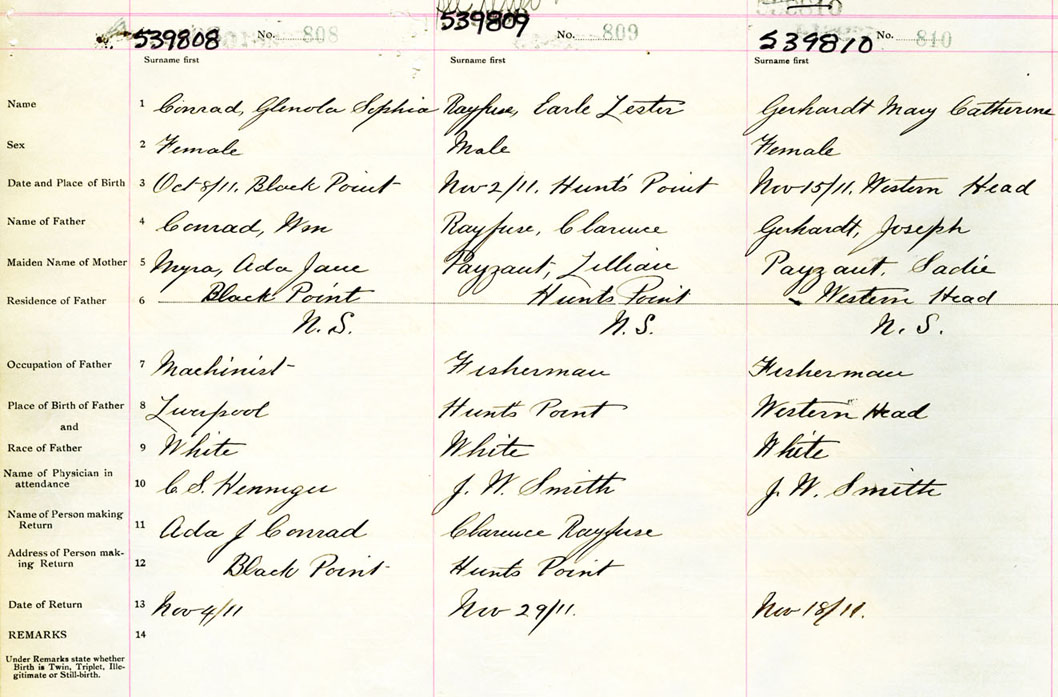 539808 No. 808 539809 No. 809 539810 No. 810
Surname first Surname first Surname first
Name 1 Conrad, Glenola Sophia Rayfuse, Earle Lester Gerhardt Mary Catherine
Sex 2 Female Male Female
Date and Place of Birth 3 Oct 8/11, Black Point Nov 2/11, Hunts Point Nov 15/11, Western Head
Name of Father 4 Conrad, Wm Rayfuse, Clarence Gerhardt, Joseph
Maiden Name of Mother 5 Myra, Ada Jane Payzant, Lillian Payzant, Sadie
Residence of Father 6 Black Point Hunts Point Western Head
N.S. N.S. N.S.
Occupation of Father 7 Machinist Fisherman Fisherman
Place of Birth of Father 8 Liverpool Hunts Point Western Head
and
Race of Father 9 White White White
Name of Physician in
attendance 10 C S. Henniger J. W. Smith J. W. Smith
Name of Person making
Return 11 Ada J Conrad Clarence Rayfuse
Address of Person mak-
ing Return 12 Black Point Hunts Point
Date of Return 13 Nov 4/11 Nov 29/11. Nov 18/11.
REMARKS 14
Under Remarks state whether
Birth is Twin, Triplet, Ille-
gitimate or Still-birth.